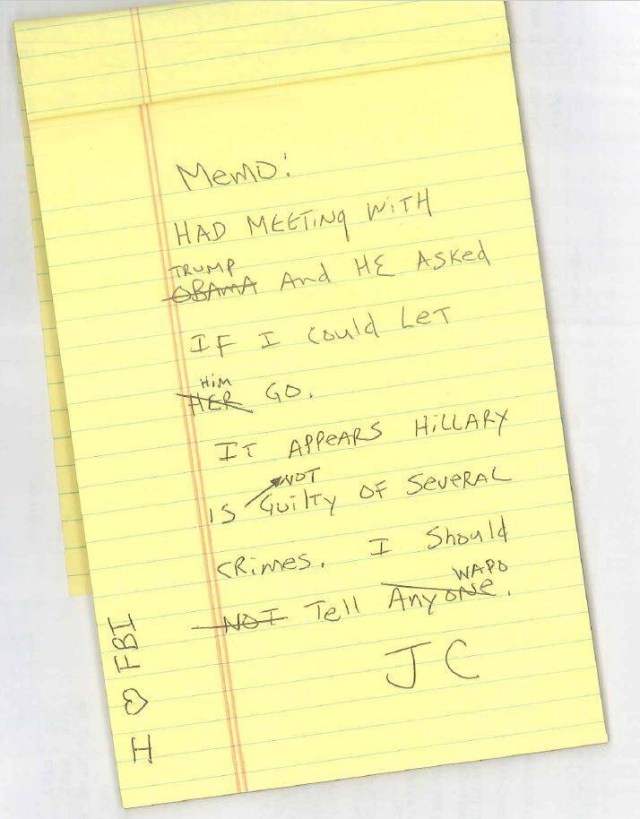 Memo:
HAD MEETING WITH
TRUMP
OBAMA And HE ASKed
IF I Could LET
HiM
HER GO.
IT APPEARS HILLARY
NOT
IS GuilTy OF SeveRAL
CRimes. I Should
WAPO
NOT Tell Anyone.
JC
I ♡ FBI